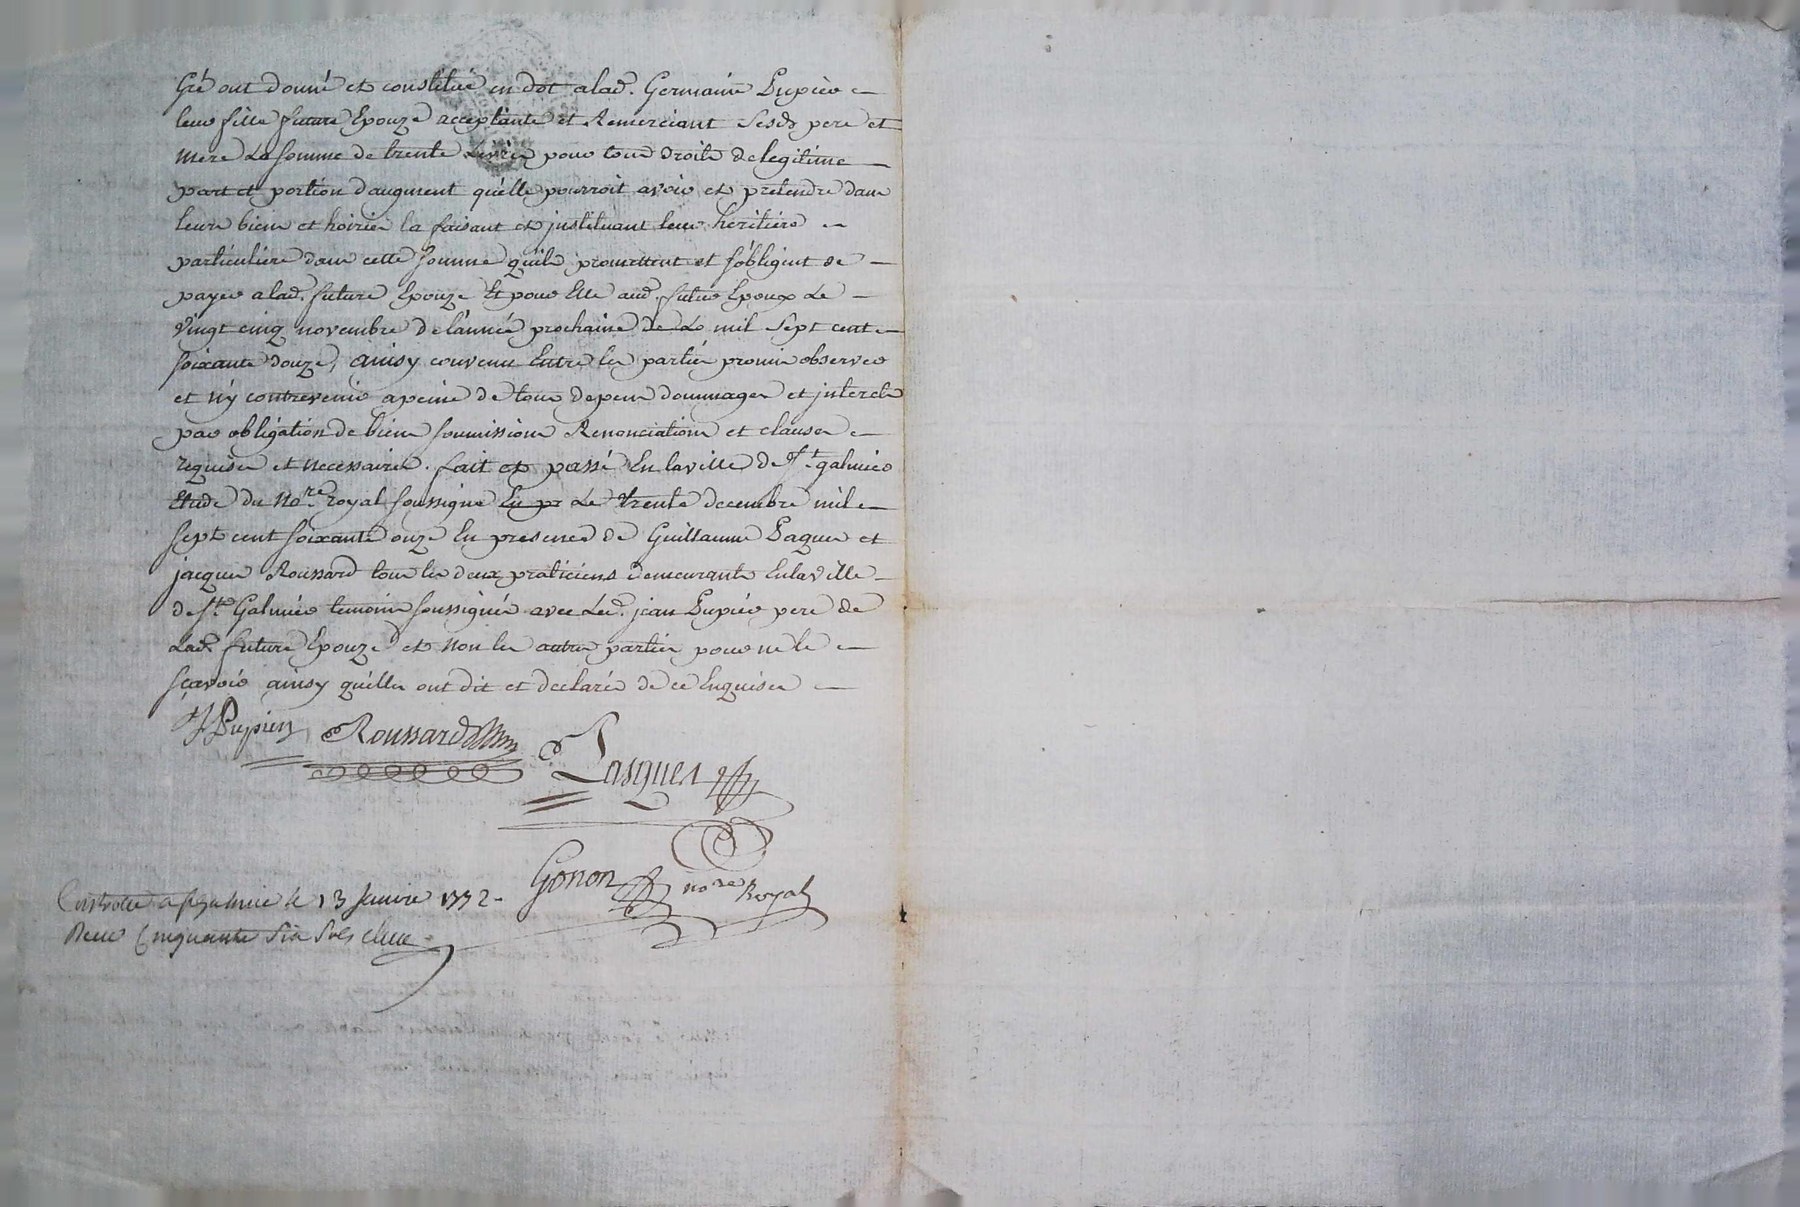 Gré ont donné et constitué en dot a lad. Germaine Pupier
leur fille future Epouze acceptante et Remerciant Sesds pere et
mere La somme de trente Livres pour tous droits de legitime
part et portion d'augment qu'elle pourroit avoir et pretendre dans
leurs biens et hoiries la faisant et jnstituant leur heritiere
particuliere dans cette somme qu'ils promettent et s'obligent de
payer a lad. future Epouze Et pour Elle aud. futur Epoux Le
Vingt cinq novembre de l'année prochaine de Lo mil Sept cent
soixante douze, ainsy convenu Entre les parties promis observer
et n'y contrevenir a peine de tous depens dommages et jnterets
par obligation de biens soumissions Renonciations et clauses
requises et necessaires. fait et passé En la ville de St. galmier
Etude du No.re royal soussigné En pr Le trente decembre mil
sept cent soixante onze En presence de Guillaume Paquet et
jacques Roussard tous les deux praticiens demeurants En la ville
de St. Galmier temoins soussignés avec Led. jean Pupier pere de
Lad. future Epouze et non les autres parties pour ne le
sçavoir ainsy qu'elles ont dit et declaré de ce Enquises
J Pupier Roussard
Pasquet
Gonon no.re Royal
Controllé a St galmier le 13 Janvier 1772.
Reçu Cinquante Six Sols